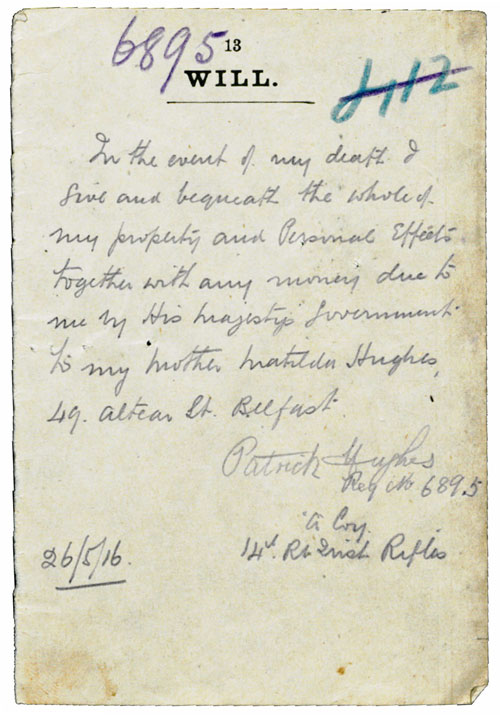 6895
13
WILL.
In the event of my death I
Give and bequeath the whole of
my property and Personal Effects
together with any money due to
me by His Majestys Government
to my Mother Matilda Hughes,
49. Altcar St. Belfast.
Patrick Hughes
Reg No 6895
A Coy.
14th Rl Irish Rifles
26/5/16.